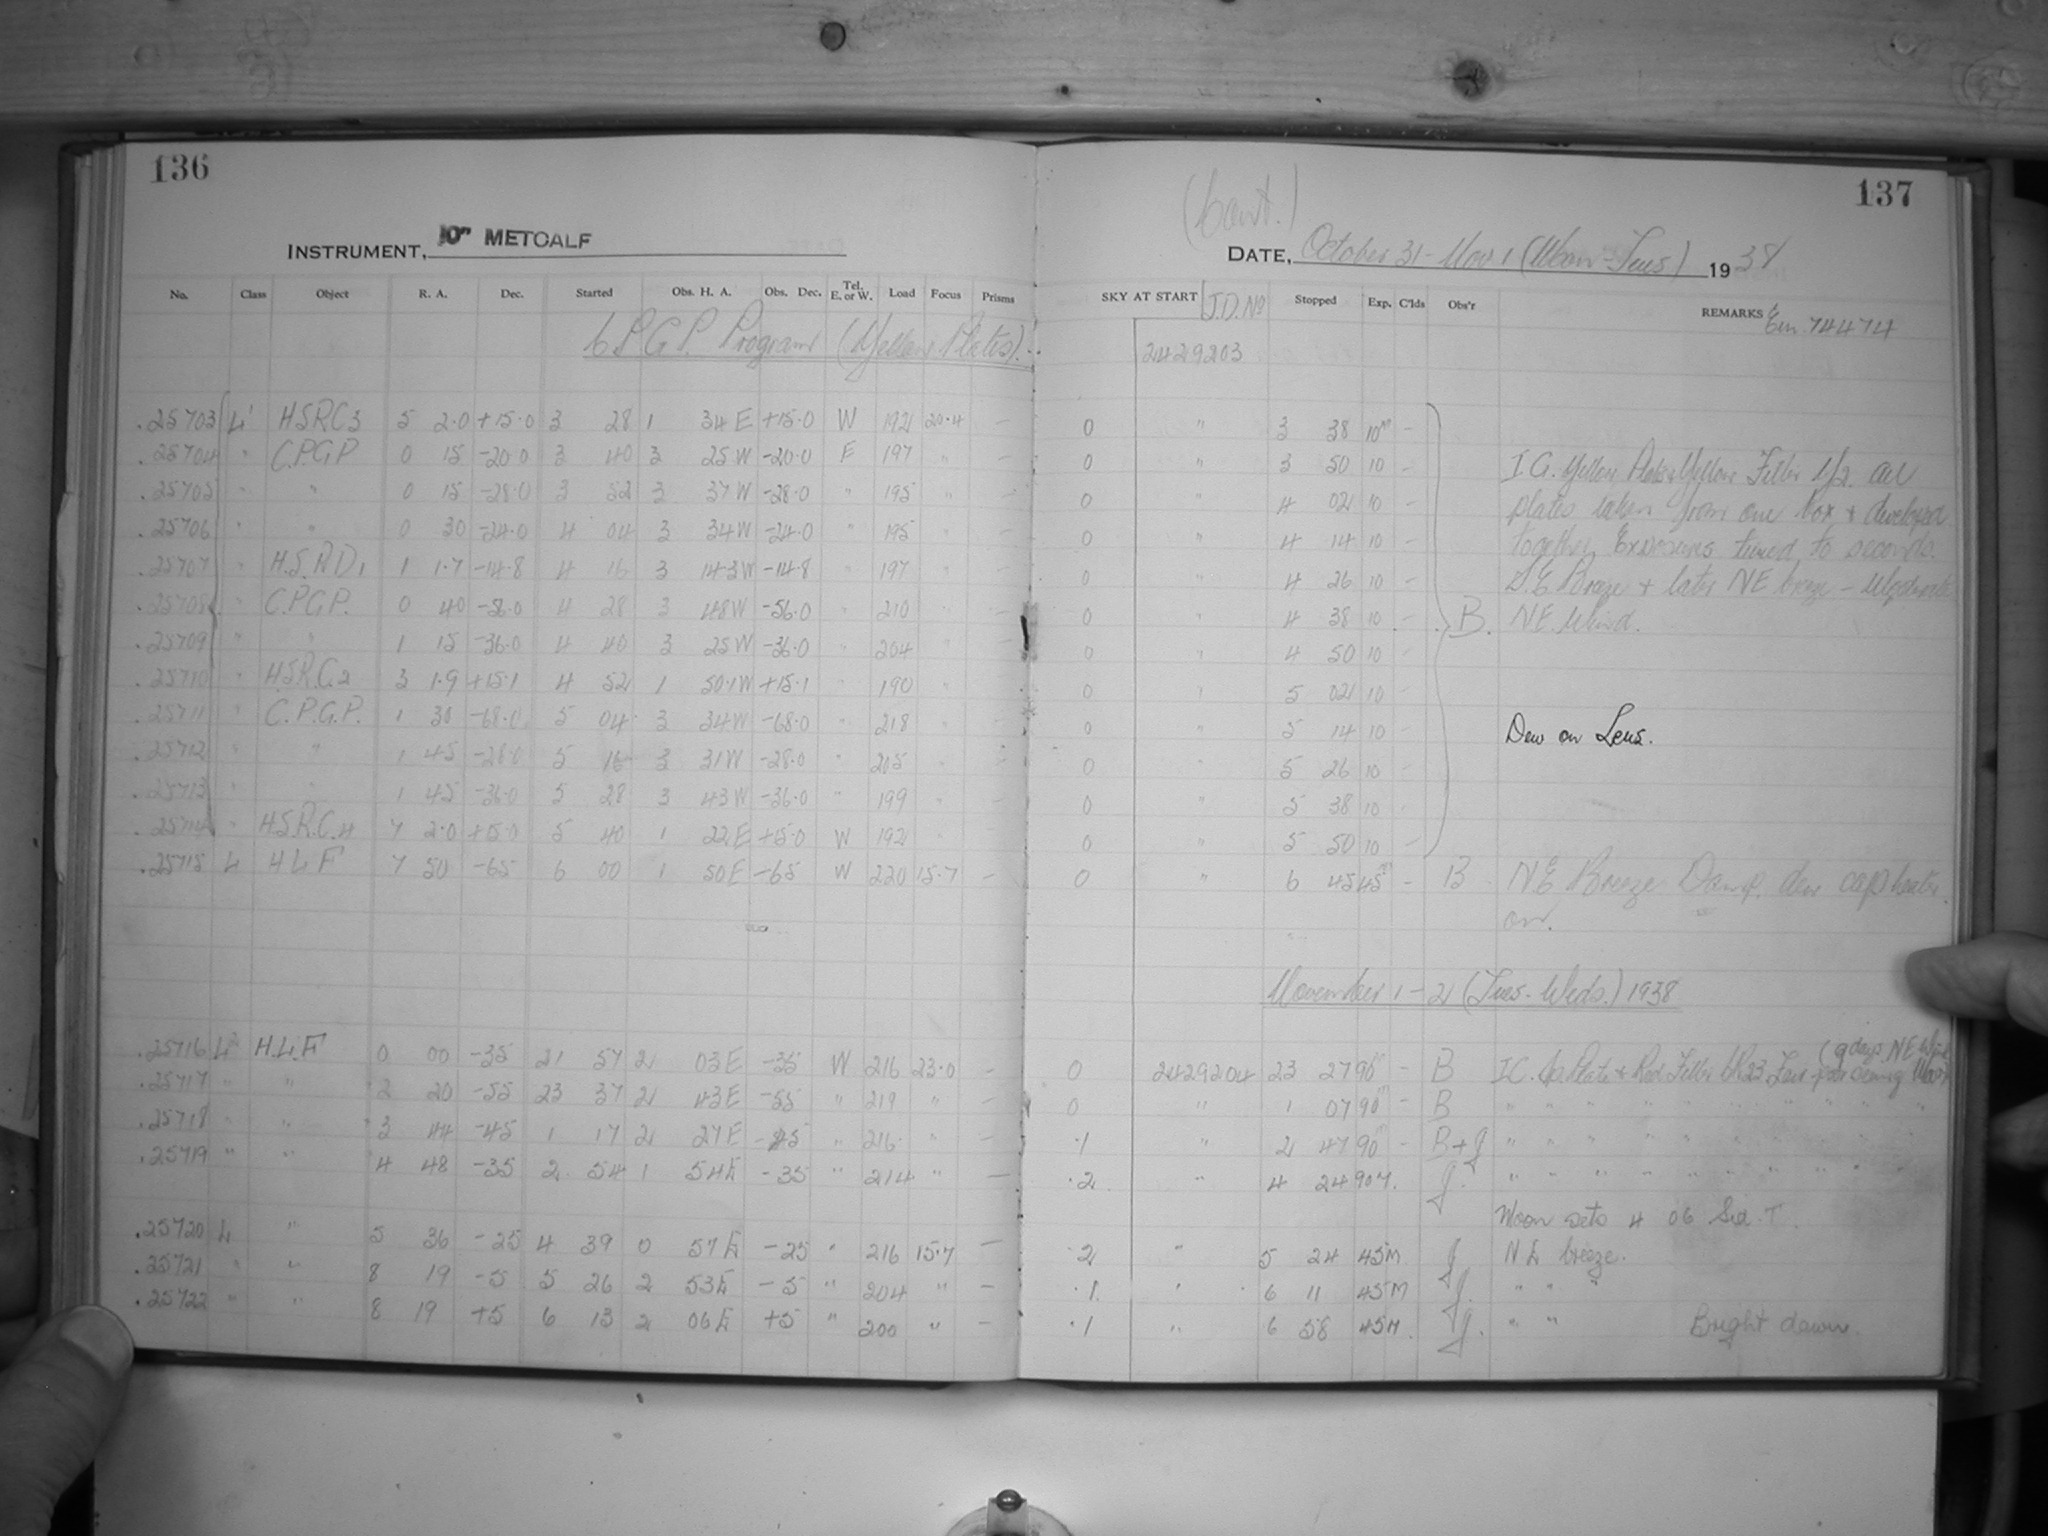 136
137
(Cont.)
INSTRUMENT, 10" METCALF
DATE, October 31 - Nov. 1 (Mon-Tues) 1938
No. Class Object R. A. Dec. Started Obs. H. A. Obs. Dec. Tel. E. or W. Load Focus Prisms SKY AT START J.D. No Stopped Exp. C'lds Obs'r REMARKS Em. 74474
C.P.G.P. Program (Yellow Plates).
2429203
.25703 L' HSRC3 5 2.0 +15.0 3 28 1 34 E +15.0 W 192 20.4 - 0 " 3 38 10m -
.25704 " C.P.G.P 0 15 -20.0 3 40 3 25 W -20.0 E 197 " - 0 " 3 50 10 - I.C. Yellow Plates & Yellow Filter All
.25705 " " 0 15 -28.0 3 52 3 37 W -28.0 " 195 " - 0 " 4 02 10 - plates taken from one box & developed
.25706 " " 0 30 -24.0 4 04 3 34 W -24.0 " 195 " - 0 " 4 14 10 - together. Exposures timed to seconds.
.25707 " H.S.R.D1 1 1.7 -14.8 4 16 3 14.3 W -14.8 " 197 " - 0 " 4 26 10 - S.E Breeze & later NE breeze - Moderate
.25708 " C.P.G.P. 0 40 -56.0 4 28 3 48 W -56.0 " 210 " - 0 " 4 38 10 - B. NE. Wind.
.25709 " " 1 15 -36.0 4 40 3 25 W -36.0 " 204 " - 0 " 4 50 10 -
.25710 " H.S.R.C.2 3 1.9 +15.1 4 52 1 50.1 W +15.1 " 190 " - 0 " 5 02 10 -
.25711 " C.P.G.P. 1 30 -68.0 5 04 3 34 W -68.0 " 218 " - 0 " 5 14 10 - Dew on Lens.
.25712 " " 1 45 -28.0 5 16 3 31 W -28.0 " 205 " - 0 " 5 26 10 -
.25713 " " 1 45 -36.0 5 28 3 43 W -36.0 " 199 " - 0 " 5 38 10 -
.25714 " H.S.R.C.4 7 2.0 +15.0 5 40 1 22 E +15.0 W 192 " - 0 " 5 50 10 -
.25715 L H L F 7 50 -65 6 00 1 50 E -65 W 220 15.7 - 0 " 6 45 45m - B NE Breeze Damp. dew cap heater
on.
November 1-2 (Tues-Weds.) 1938
.25716 L2 H.L.F 0 00 -35 21 57 2 03 E -35 W 216 23.0 - 0 2429204 23 27 90m - B I.C. Plate & Red Filter
.25717 " " 2 20 -55 23 37 2 43 E -55 " 219 " - 0 " 1 07 90m - B " " "
.25718 " " 3 44 -45 1 17 2 27 E -45 " 216 " - .1 " 2 47 90m - B+J " " "
.25719 " " 4 48 -35 2 54 1 54 E -35 " 214 " - .2 " 4 24 90M. J. " " "
Moon sets 4 06 Sid. T.
.25720 L " 5 36 -25 4 39 0 57 E -25 " 216 15.7 - .2 " 5 24 45M J NE breeze.
.25721 " " 8 19 -5 5 26 2 53 E -5 " 204 " - .1 " 6 11 45M J. " "
.25722 " " 8 19 +5 6 13 2 06 E +5 " 200 " - .1 " 6 58 45M. J. " " Bright dawn.